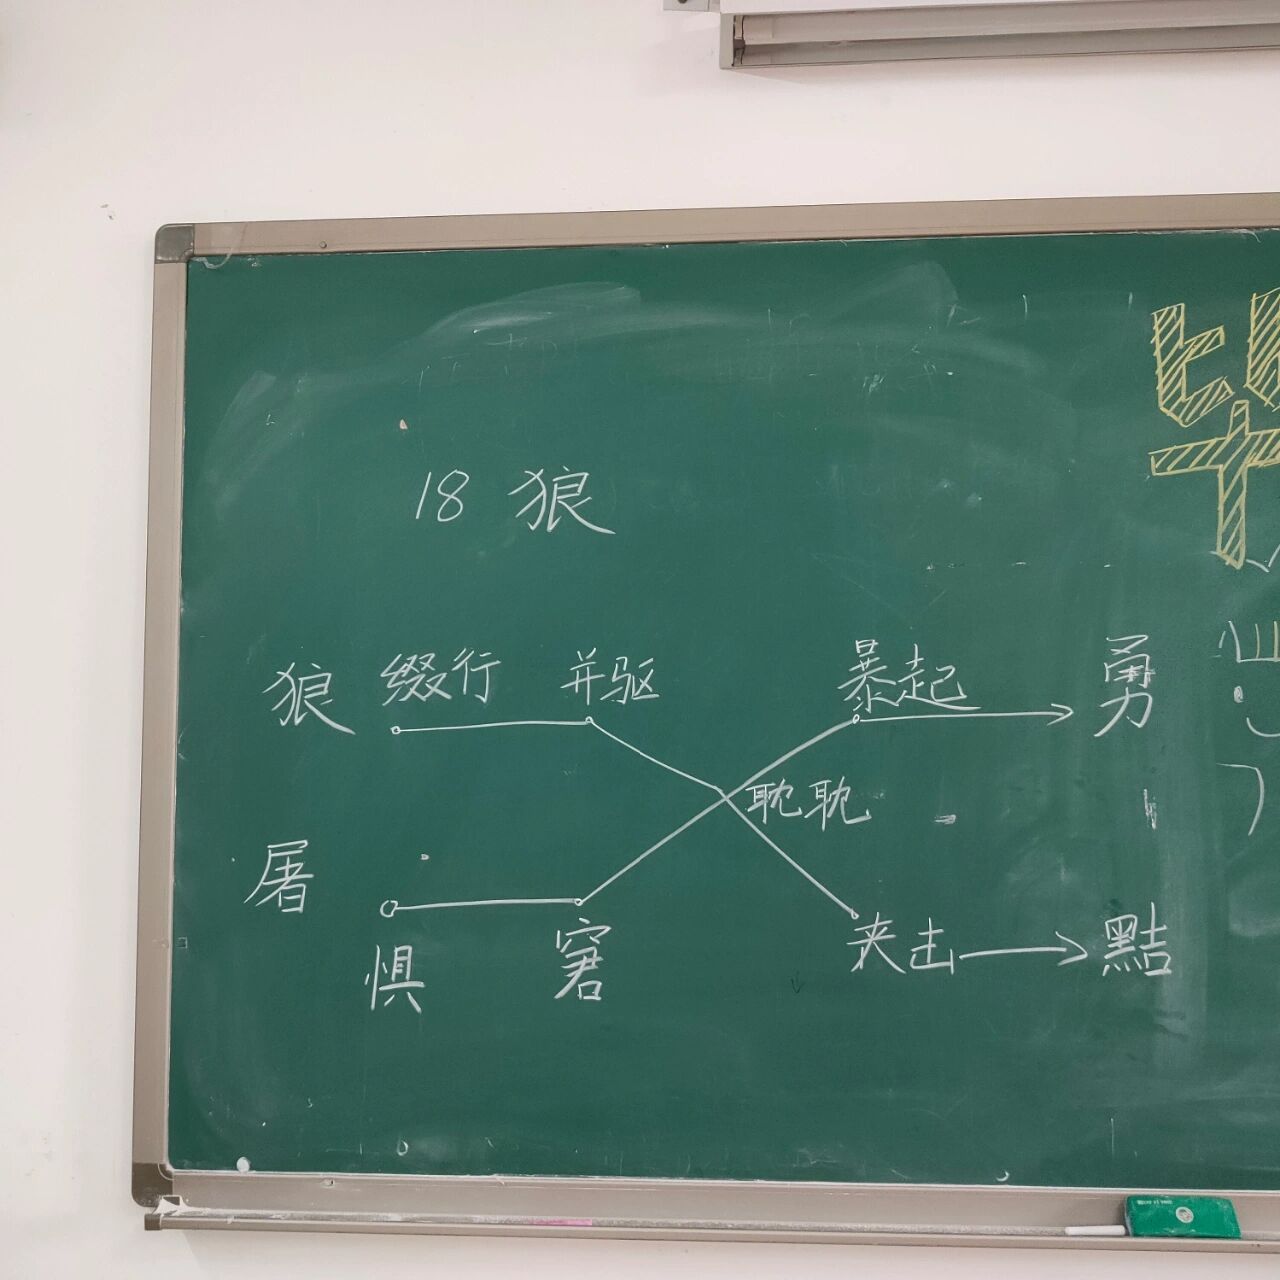 18 狼
狼 缀行 并驱 暴起 勇
耽耽
屠
惧 窘 夹击 黠
毕